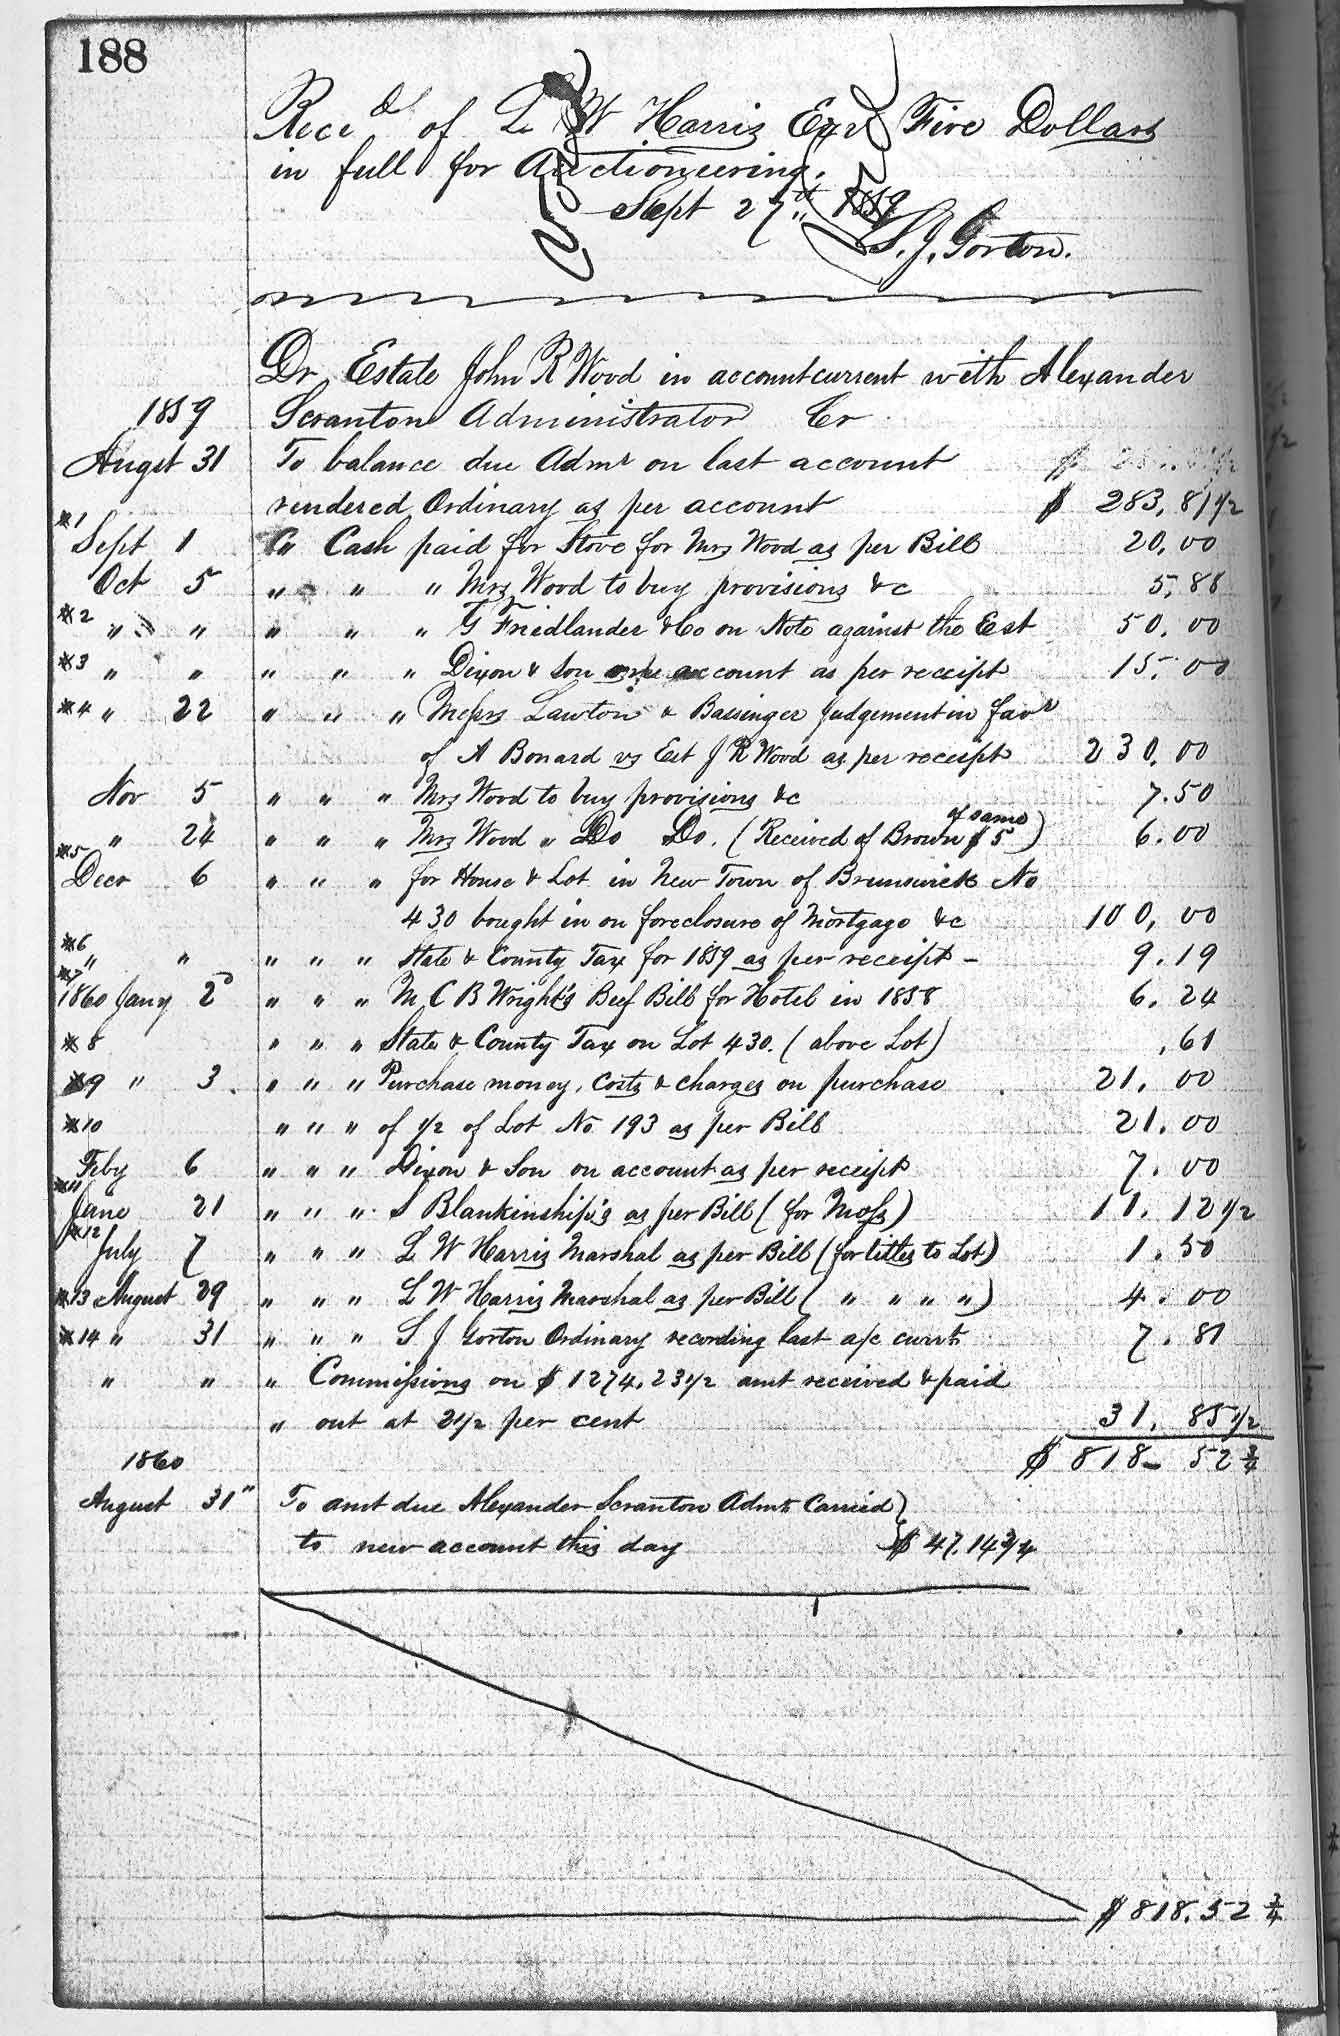 188
Recd of L W Harris Exr Five Dollars
in full for Auctioneering.
Sept 27th 1859
S. J. Gorton.
Dr Estate John R Wood in account current with Alexander
1859 Scranton Administrator Cr
Augst 31 To balance due Admr on last account
rendered Ordinary as per account $ 283,81 1/2
*1
Sept 1 " Cash paid for Stove for Mrs Wood as per Bill 20,00
Oct 5 " " " Mrs Wood to buy provisions &c 5,88
*2 " " " " " G Friedlander & Co on Note against the Est 50.00
*3 " " " " " Dixon & Son account as per receipt 15.00
*4 " 22 " " " Messrs Lawton & Bassinger Judgement in favr
of A Bonard vs Est J R Wood as per receipt 230,00
Nov 5 " " " Mrs Wood to buy provisions &c 7.50
of same
" 24 " " " Mrs Wood " Do Do. (Received of Brown $5) 6.00
*5
Decr 6 " " " for House & Lot in New Town of Brunswick No
430 bought in on foreclosure of Mortgage &c 100,00
*6 " " " " " State & County Tax for 1859 as per receipt - 9.19
*7
1860 Jany 2 " " " M C B Wright's Beef Bill for Hotel in 1858 6.24
*8 " " " State & County Tax on Lot 430. (above Lot) ,61
*9 " 3 " " " Purchase money, costs & charges on purchase 21,00
*10 " " " of 1/2 of Lot No 193 as per Bill 21.00
Feby 6 " " " Dixon & Son on account as per receipt 7.00
*11
June 21 " " " S Blankinship's as per Bill (for Moss) 11.12 1/2
*12
July 7 " " " L W Harris Marshal as per Bill (for titles to Lot) 1.50
*13 August 29 " " " L W Harris Marshal as per Bill ( " " " ") 4.00
*14 " 31 " " " S J Gorton Ordinary recording last a/c currt 7.81
" " " Commissions on $1274,23 1/2 amt received & paid
" out at 2 1/2 per cent 31,85 1/2
1860 $ 818- 52 3/4
August 31" To amt due Alexander Scranton Admr Carried
to new account this day $ 47.14 3/4
$ 818.52 3/4